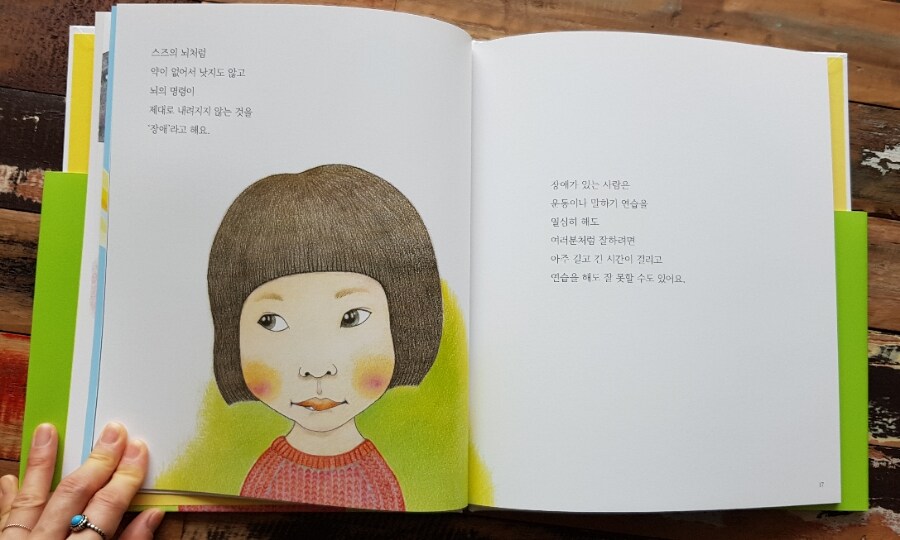 스즈의 뇌처럼
약이 없어서 낫지도 않고
뇌의 명령이
제대로 내려지지 않는 것을
"장애"라고 해요.
장애가 있는 사람은
운동이나 말하기 연습을
열심히 해도
여러분처럼 잘하려면
아주 길고 긴 시간이 걸리고
연습을 해도 잘 못할 수도 있어요.
17